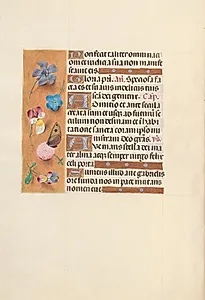 Non fecit taliter omni na
tioni et iudicia sua non ma
nifestauit eis.
Gloria pri. An. Speciosa fa
cta es et suauis in deliciis tuis
sancta dei genitrix. Cap.
Ab initio et ante secula
creata sum et usque ad futurum se
culum non desinam et in habi
tatione sancta coram ipso mi
nistraui deo gras.
Aue maris stella dei ma
ter alma atque semper uirgo felix
celi porta
Sumens illud aue gabrielis
ore funda nos in pace mutans
nomen eue